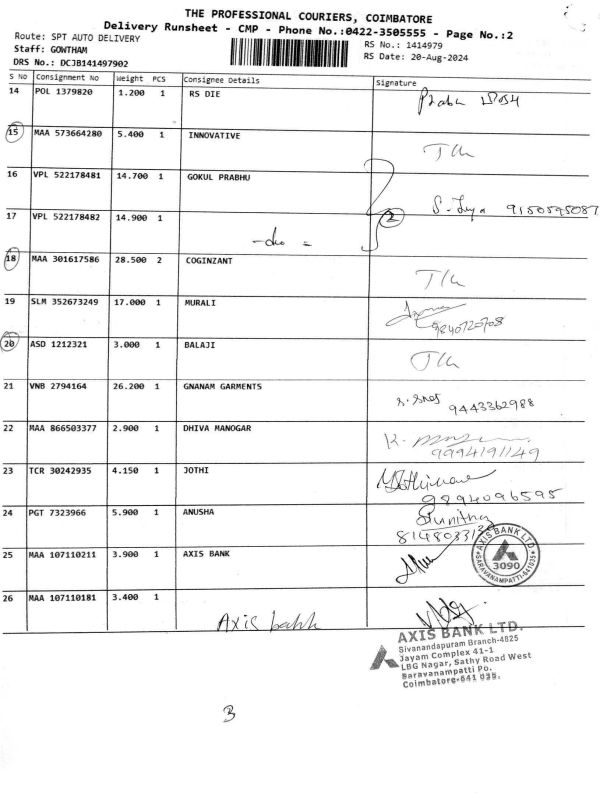 THE PROFESSIONAL COURIERS, COIMBATORE
Delivery Runsheet - CMP - Phone No.:0422-3505555 - Page No.:2
Route: SPT AUTO DELIVERY
RS No.: 1414979
Staff: GOWTHAM
RS Date: 20-Aug-2024
DRS No.: DCJB141497902
S No Consignment No Weight PCS Consignee Details Signature
14 POL 1379820 1.200 1 RS DIE
15 MAA 573664280 5.400 1 INNOVATIVE
16 VPL 522178481 14.700 1 GOKUL PRABHU
2
9150595087
17 VPL 522178482 14.900 1
-do =
18 MAA 301617586 28.500 2 COGINZANT
19 SLM 352673249 17.000 1 MURALI
9840720708
20 ASD 1212321 3.000 1 BALAJI
21 VNB 2794164 26.200 1 GNANAM GARMENTS
9443362988
22 MAA 866503377 2.900 1 DHIVA MANOGAR
9994191149
23 TCR 30242935 4.150 1 JOTHI
9894096595
24 PGT 7323966 5.900 1 ANUSHA
Sunitha
25 MAA 107110211 3.900 1 AXIS BANK
AXIS BANK LTD.
3090
SARAVANAMPATTI-641035
26 MAA 107110181 3.400 1
Axis bank
AXIS BANK LTD.
Sivanandapuram Branch-4825
Jayam Complex 41-1
LBG Nagar, Sathy Road West
Saravanampatti Po.
Coimbatore-641 035.
3